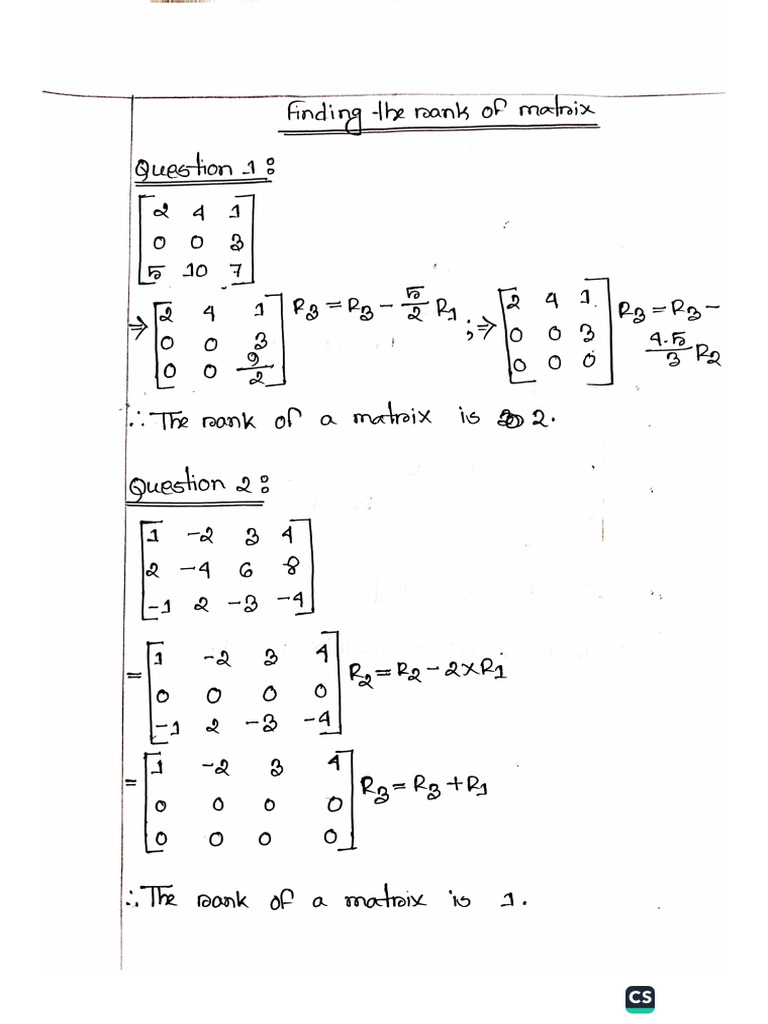 Finding the rank of matrix
Question 1:
[2 4 1
0 0 3
5 10 7]
⇒ [2 4 1
0 0 3
0 0 9/2] R3 = R3 - 5/2 R1 ; ⇒ [2 4 1
0 0 3
0 0 0] R3 = R3 - 4.5/3 R2
∴ The rank of a matrix is 2.
Question 2:
[1 -2 3 4
2 -4 6 8
-1 2 -3 -4]
= [1 -2 3 4
0 0 0 0
-1 2 -3 -4] R2 = R2 - 2×R1
= [1 -2 3 4
0 0 0 0
0 0 0 0] R3 = R3 + R1
∴ The rank of a matrix is 1.
CS